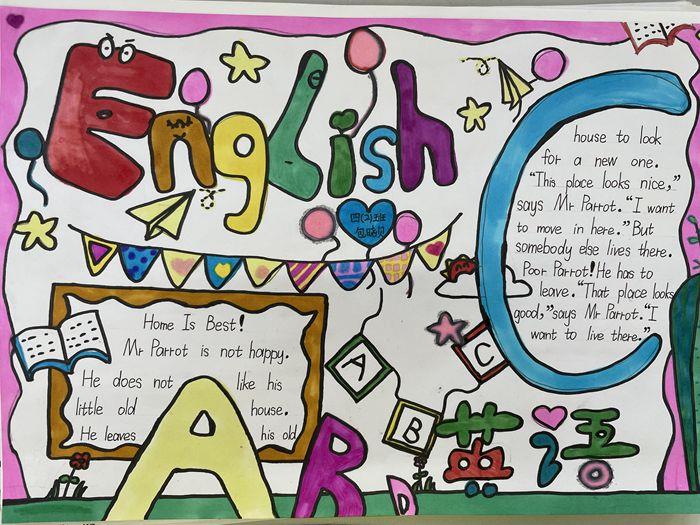 English
四(2)班
包晓贝
Home Is Best!
Mr Parrot is not happy.
He does not like his
little old house.
He leaves his old
house to look
for a new one.
"This place looks nice,"
says Mr Parrot. "I want
to move in here." But
somebody else lives there.
Poor Parrot! He has to
leave. "That place looks
good," says Mr Parrot. "I
want to live there."
A
B
C
A
B
C
英语